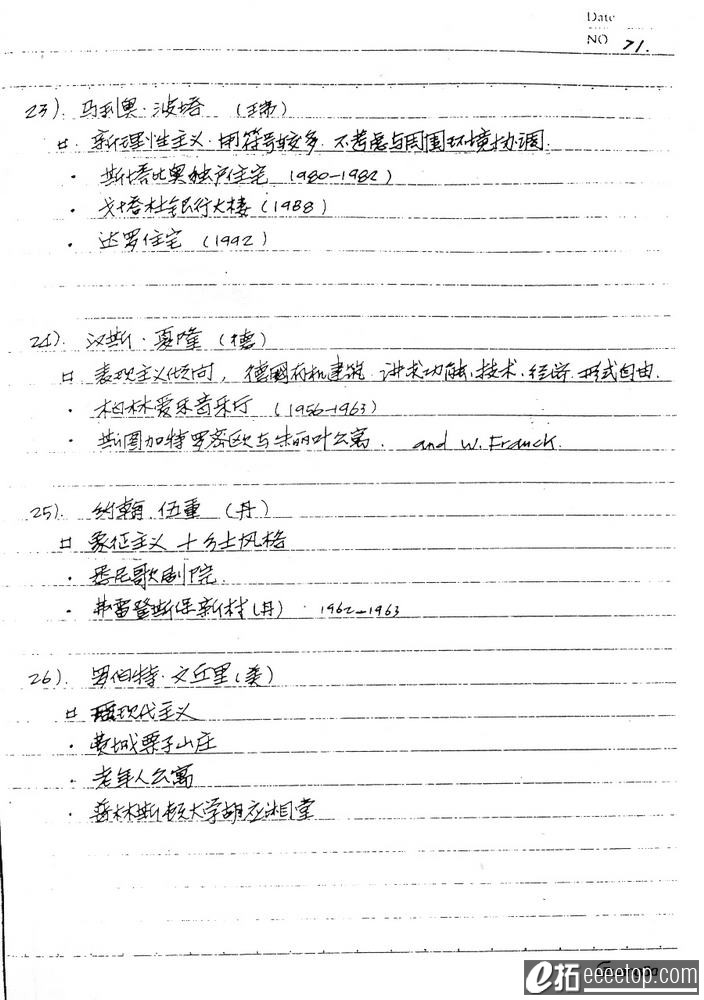 Date
NO 71.
23). 马利奥·波塔 (瑞)
新理性主义·用符号较多·不考虑与周围环境协调.
· 斯塔比奥独户住宅 (1980-1982)
· 戈塔杜银行大楼 (1988)
· 达罗住宅 (1992)
24). 汉斯·夏隆 (德)
表现主义倾向, 德国有机建筑. 讲求功能、技术、经济. 形式自由.
· 柏林爱乐音乐厅 (1956-1963)
· 斯图加特罗密欧与朱丽叶公寓. and W. Franck.
25). 约翰 伍重 (丹)
象征主义 + 乡土风格
· 悉尼歌剧院.
· 弗雷登斯堡新村(丹) · 1962-1963
26). 罗伯特·文丘里(美)
现代主义
· 费城栗子山庄
· 老年人公寓
· 普林斯顿大学胡应湘堂
e拓 eeeetop.com